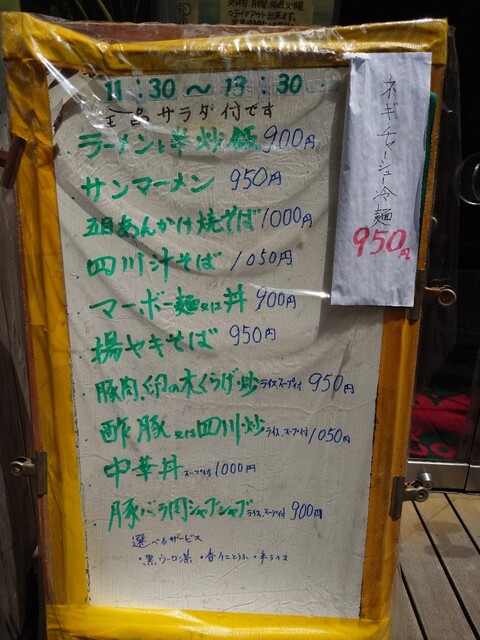 11:30〜13:30
全品サラダ付です
ラーメンと半炒飯 900円
サンマーメン 950円
五目あんかけ焼そば 1000円
四川汁そば 1050円
マーボー麺又は丼 900円
揚ヤキそば 950円
豚肉、卵の木くらげ炒 ライス、スープ付 950円
酢豚又は四川炒 ライス、スープ付 1050円
中華丼 スープ付 1000円
豚バラ肉シャブシャブ ライス、スープ付 900円
選べるサービス
・黒ウーロン茶 ・杏仁とうふ ・半ライス
ネギチャーシュー冷麺
950円